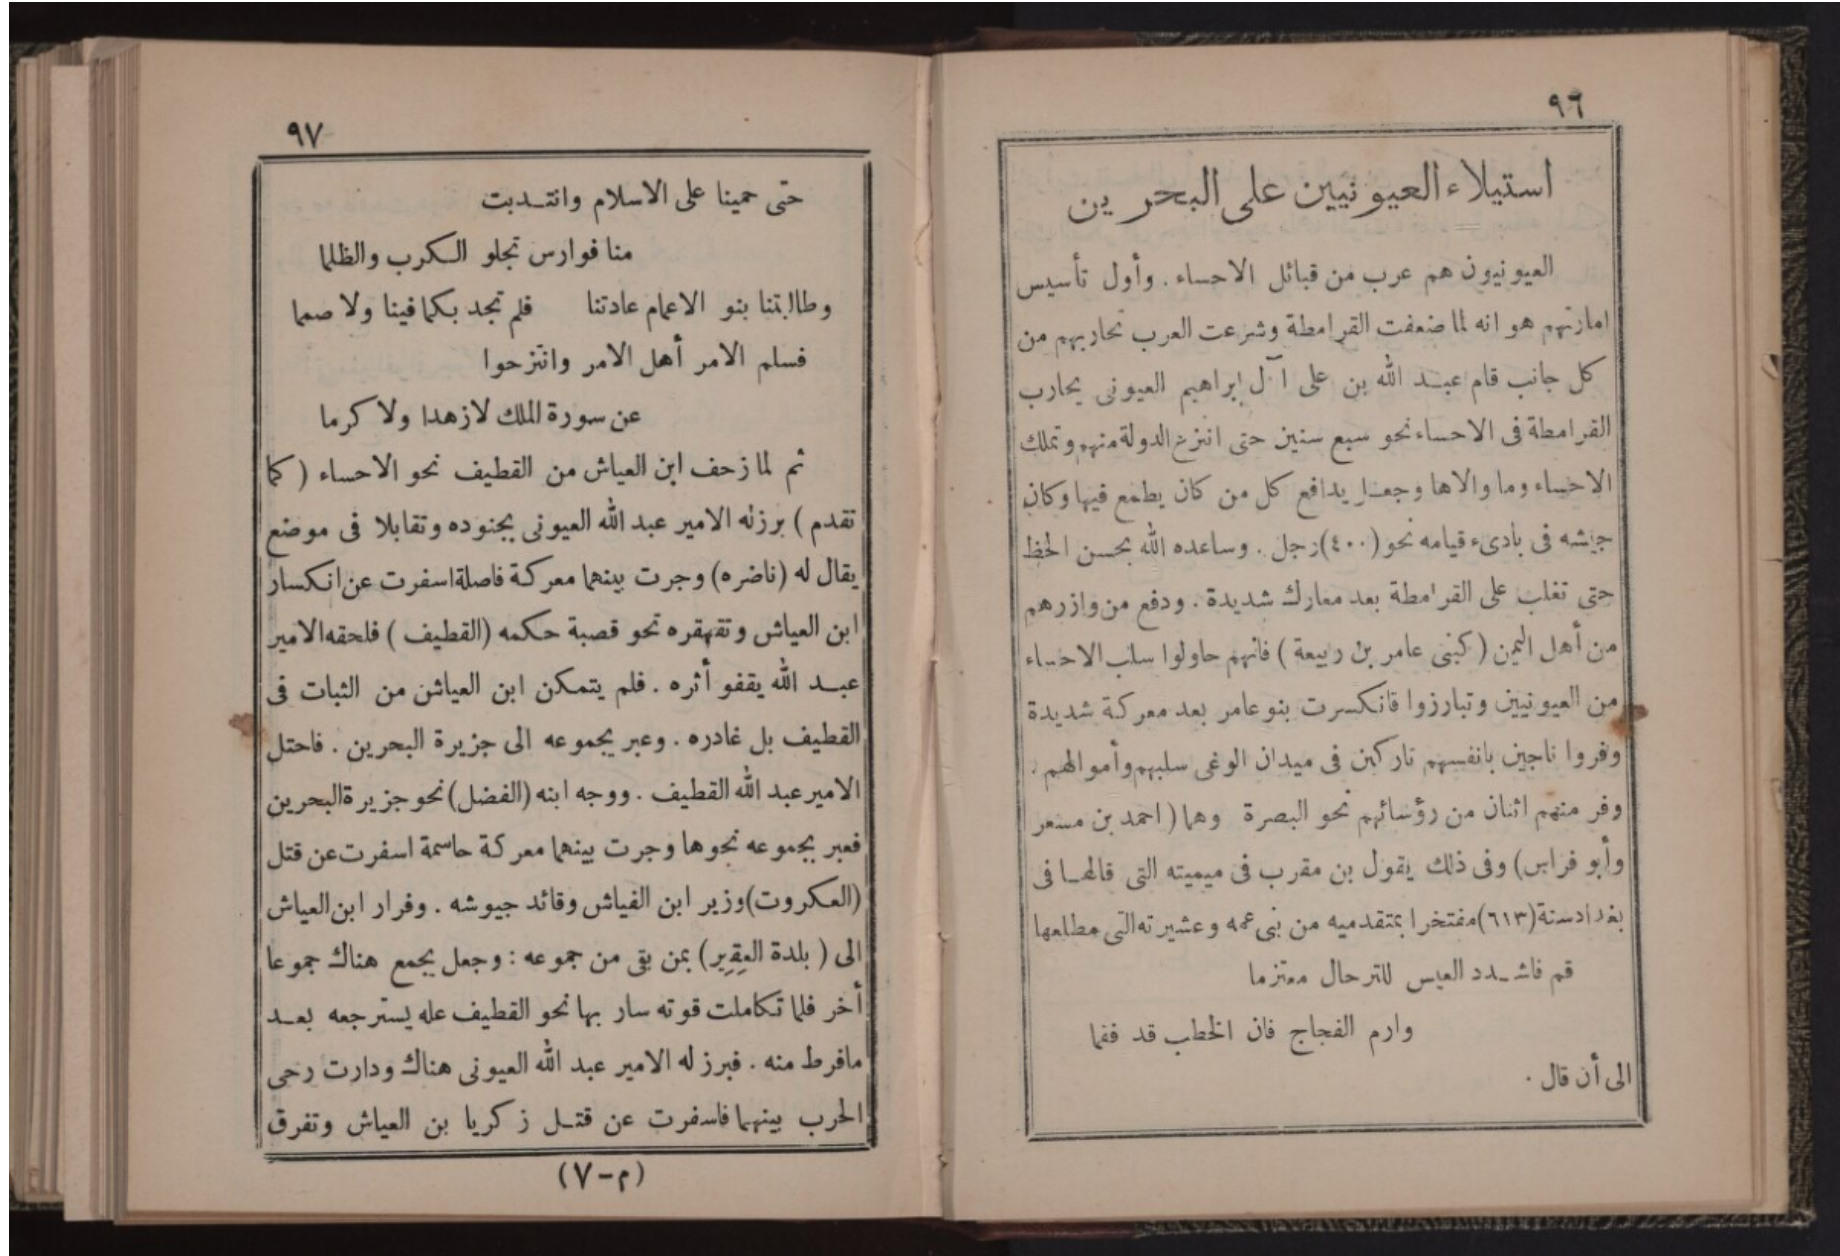 ٩٦
استيلاء العيونيين على البحرين
العيونيون هم عرب من قبائل الاحساء . وأول تأسيس
امارتهم هو انه لما ضعفت القرامطة وشرعت العرب تحاربهم من
كل جانب قام عبد الله بن على آل إبراهيم العيونى يحارب
القرامطة فى الاحساء نحو سبع سنين حتى انتزع الدولة منهم وتملك
الاحساء وما والاها وجعل يدافع كل من كان يطمع فيها وكان
جيشه فى بادىء قيامه نحو (٤٠٠) رجل . وساعده الله بحسن الحظ
حتى تغلب على القرامطة بعد معارك شديدة . ودفع من وازرهم
من أهل اليمن (كبنى عامر بن ربيعة) فانهم حاولوا سلب الاحساء
من العيونيين وتبارزوا فانكسرت بنو عامر بعد معركة شديدة
وفروا ناجين بانفسهم تاركين فى ميدان الوغى سلبهم وأموالهم .
وفر منهم اثنان من رؤسائهم نحو البصرة وهما (احمد بن مسعر
وأبو فراس) وفى ذلك يقول بن مقرب فى ميميته التى قالها فى
بغداد سنة (٦١٣) مفتخرا بمتقدميه من بنى عمه وعشيرته التى مطلعها
قم فاشدد العيس للترحال معتزما
وارم الفجاج فان الخطب قد فقما
الى أن قال .
٩٧
حتى حمينا على الاسلام وانتدبت
منا فوارس تجلو الكرب والظلما
وطالبتنا بنو الاعمام عادتنا فلم تجد بكما فينا ولا صمما
فسلم الامر أهل الامر وانتزحوا
عن سورة الملك لا زهدا ولا كرما
ثم لما زحف ابن العياش من القطيف نحو الاحساء (كما
تقدم) برز له الامير عبد الله العيونى بجنوده وتقابلا فى موضع
يقال له (ناضره) وجرت بينهما معركة فاصلة اسفرت عن انكسار
ابن العياش وتقهقره نحو قصبة حكمه (القطيف) فلحقه الامير
عبد الله يقفو أثره . فلم يتمكن ابن العياش من الثبات فى
القطيف بل غادره . وعبر بجموعه الى جزيرة البحرين . فاحتل
الامير عبد الله القطيف . ووجه ابنه (الفضل) نحو جزيرة البحرين
فعبر بجموعه نحوها وجرت بينهما معركة حاسمة اسفرت عن قتل
(العكروت) وزير ابن الفياش وقائد جيوشه . وفرار ابن العياش
الى (بلدة العقير) بمن بقى من جموعه : وجعل يجمع هناك جموعا
أخر فلما تكاملت قوته سار بها نحو القطيف عله يسترجعه بعد
مافرط منه . فبرز له الامير عبد الله العيونى هناك ودارت رحى
الحرب بينهما فاسفرت عن قتل زكريا بن العياش وتفرق
(م-٧)